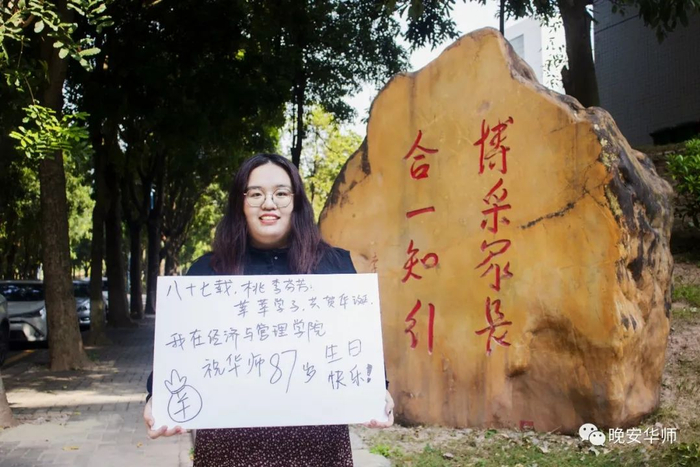 博采眾長
合一知行
八十七载，桃李芬芳；
莘莘学子，共贺华诞。
我在经济与管理学院
祝华师87岁生日
快乐！
¥
晚安华师